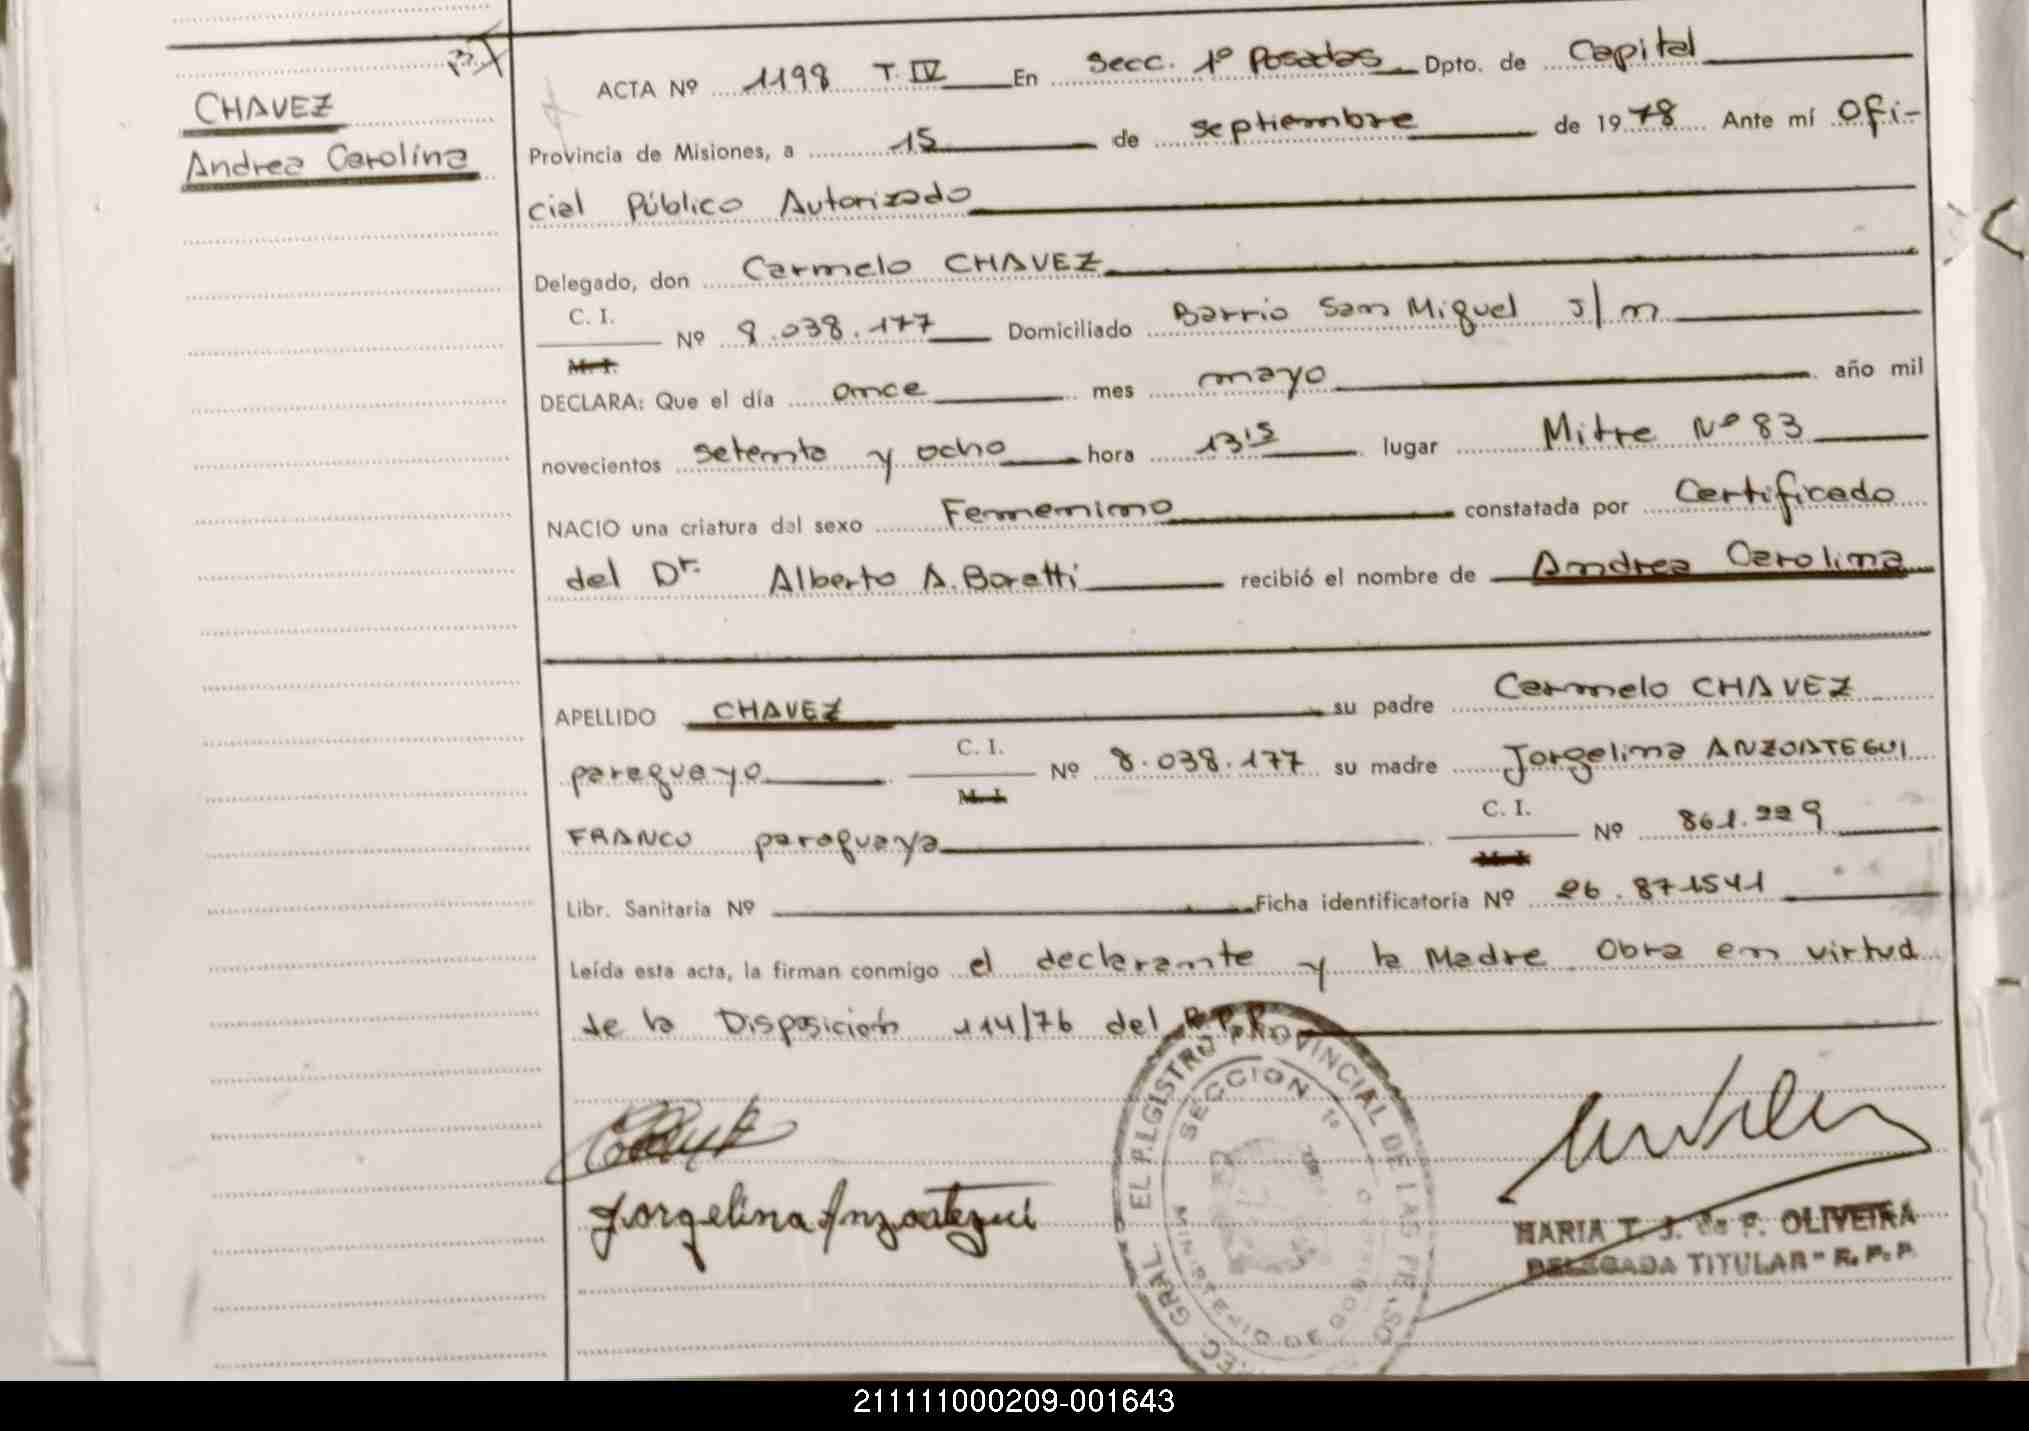 CHAVEZ
Andrea Carolina
ACTA Nº 1198 T. IV En Secc. 1º Posadas Dpto. de Capital
Provincia de Misiones, a 15 de septiembre de 1978 Ante mí Ofi-
cial Público Autorizado
Delegado, don Carmelo CHAVEZ
C. I.
M. I.
Nº 8.038.177 Domiciliado Barrio San Miguel s/n
DECLARA: Que el día once mes mayo año mil
novecientos setenta y ocho hora 13,15 lugar Mitre Nº 83
NACIO una criatura del sexo Femenino constatada por Certificado
del Dr. Alberto A. Boretti recibió el nombre de Andrea Carolina
APELLIDO CHAVEZ su padre Carmelo CHAVEZ
paraguayo C. I. M. I. Nº 8.038.177 su madre Jorgelina ANZOATEGUI
FRANCO paraguaya C. I. M. I. Nº 861.229
Libr. Sanitaria Nº Ficha identificatoria Nº 26.871541
Leída esta acta, la firman conmigo el declarante y la Madre Obra en virtud
de la Disposición 114/76 del R.P.P.
Jorgelina Anzoategui
GRAL. EL REGISTRO PROVINCIAL DE LAS PERSO
SECCION 1º
MINISTERIO DE GOBIERNO
MARIA T. J. de F. OLIVEIRA
DELEGADA TITULAR - R. P. P.
211111000209-001643